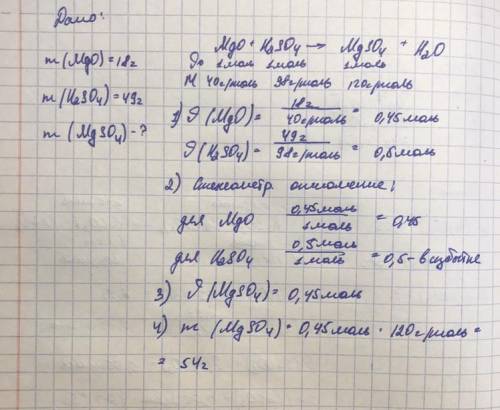 Дано:
m (MgO) = 18г
m (H₂SO₄) = 49г
m (MgSO₄) - ?
MgO + H₂SO₄ → MgSO₄ + H₂O
1моль 1моль 1моль
M 40г/моль 98г/моль 120г/моль
1) ν (MgO) = 18г / 40г/моль = 0,45моль
ν (H₂SO₄) = 49г / 98г/моль = 0,5моль
2) Стехеометр. отношение:
для MgO 0,45моль / 1моль = 0,45
для H₂SO₄ 0,5моль / 1моль = 0,5 - в избытке
3) ν (MgSO₄) = 0,45моль
4) m (MgSO₄) = 0,45моль · 120г/моль =
= 54г